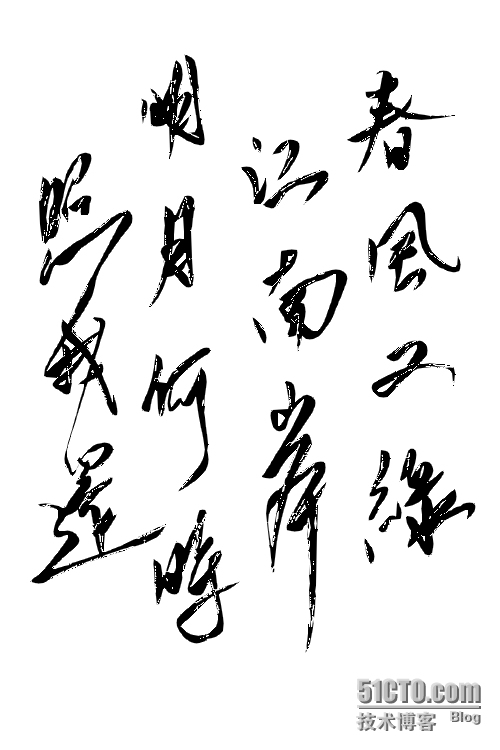 春风又绿
江南岸
明月何时
照我还
51CTO.com
技术博客 Blog